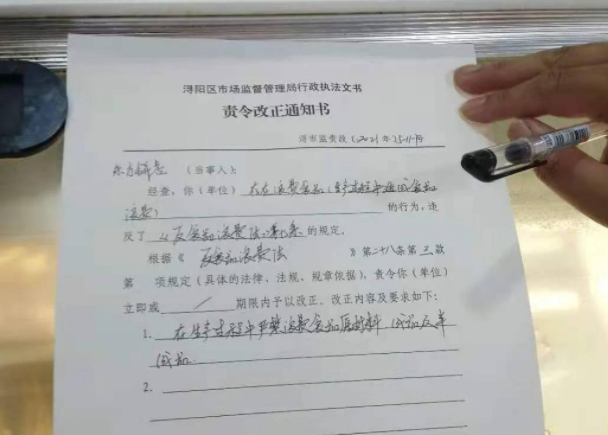 浔阳区市场监督管理局行政执法文书
责令改正通知书
浔市监责改〔2021年25-11-号
（当事人）：
经查，你（单位）存在浪费食品（生产过程中造成食品
浪费） 的行为，违
反了《反食品浪费法》第 条的规定。
根据《 反食品浪费法 》第二十八条第三款
第 项规定（具体的法律、法规、规章依据），责令你（单位）
立即或 / 期限内予以改正。改正内容及要求如下：
1. 在生产过程中严禁浪费食品原材料
2.